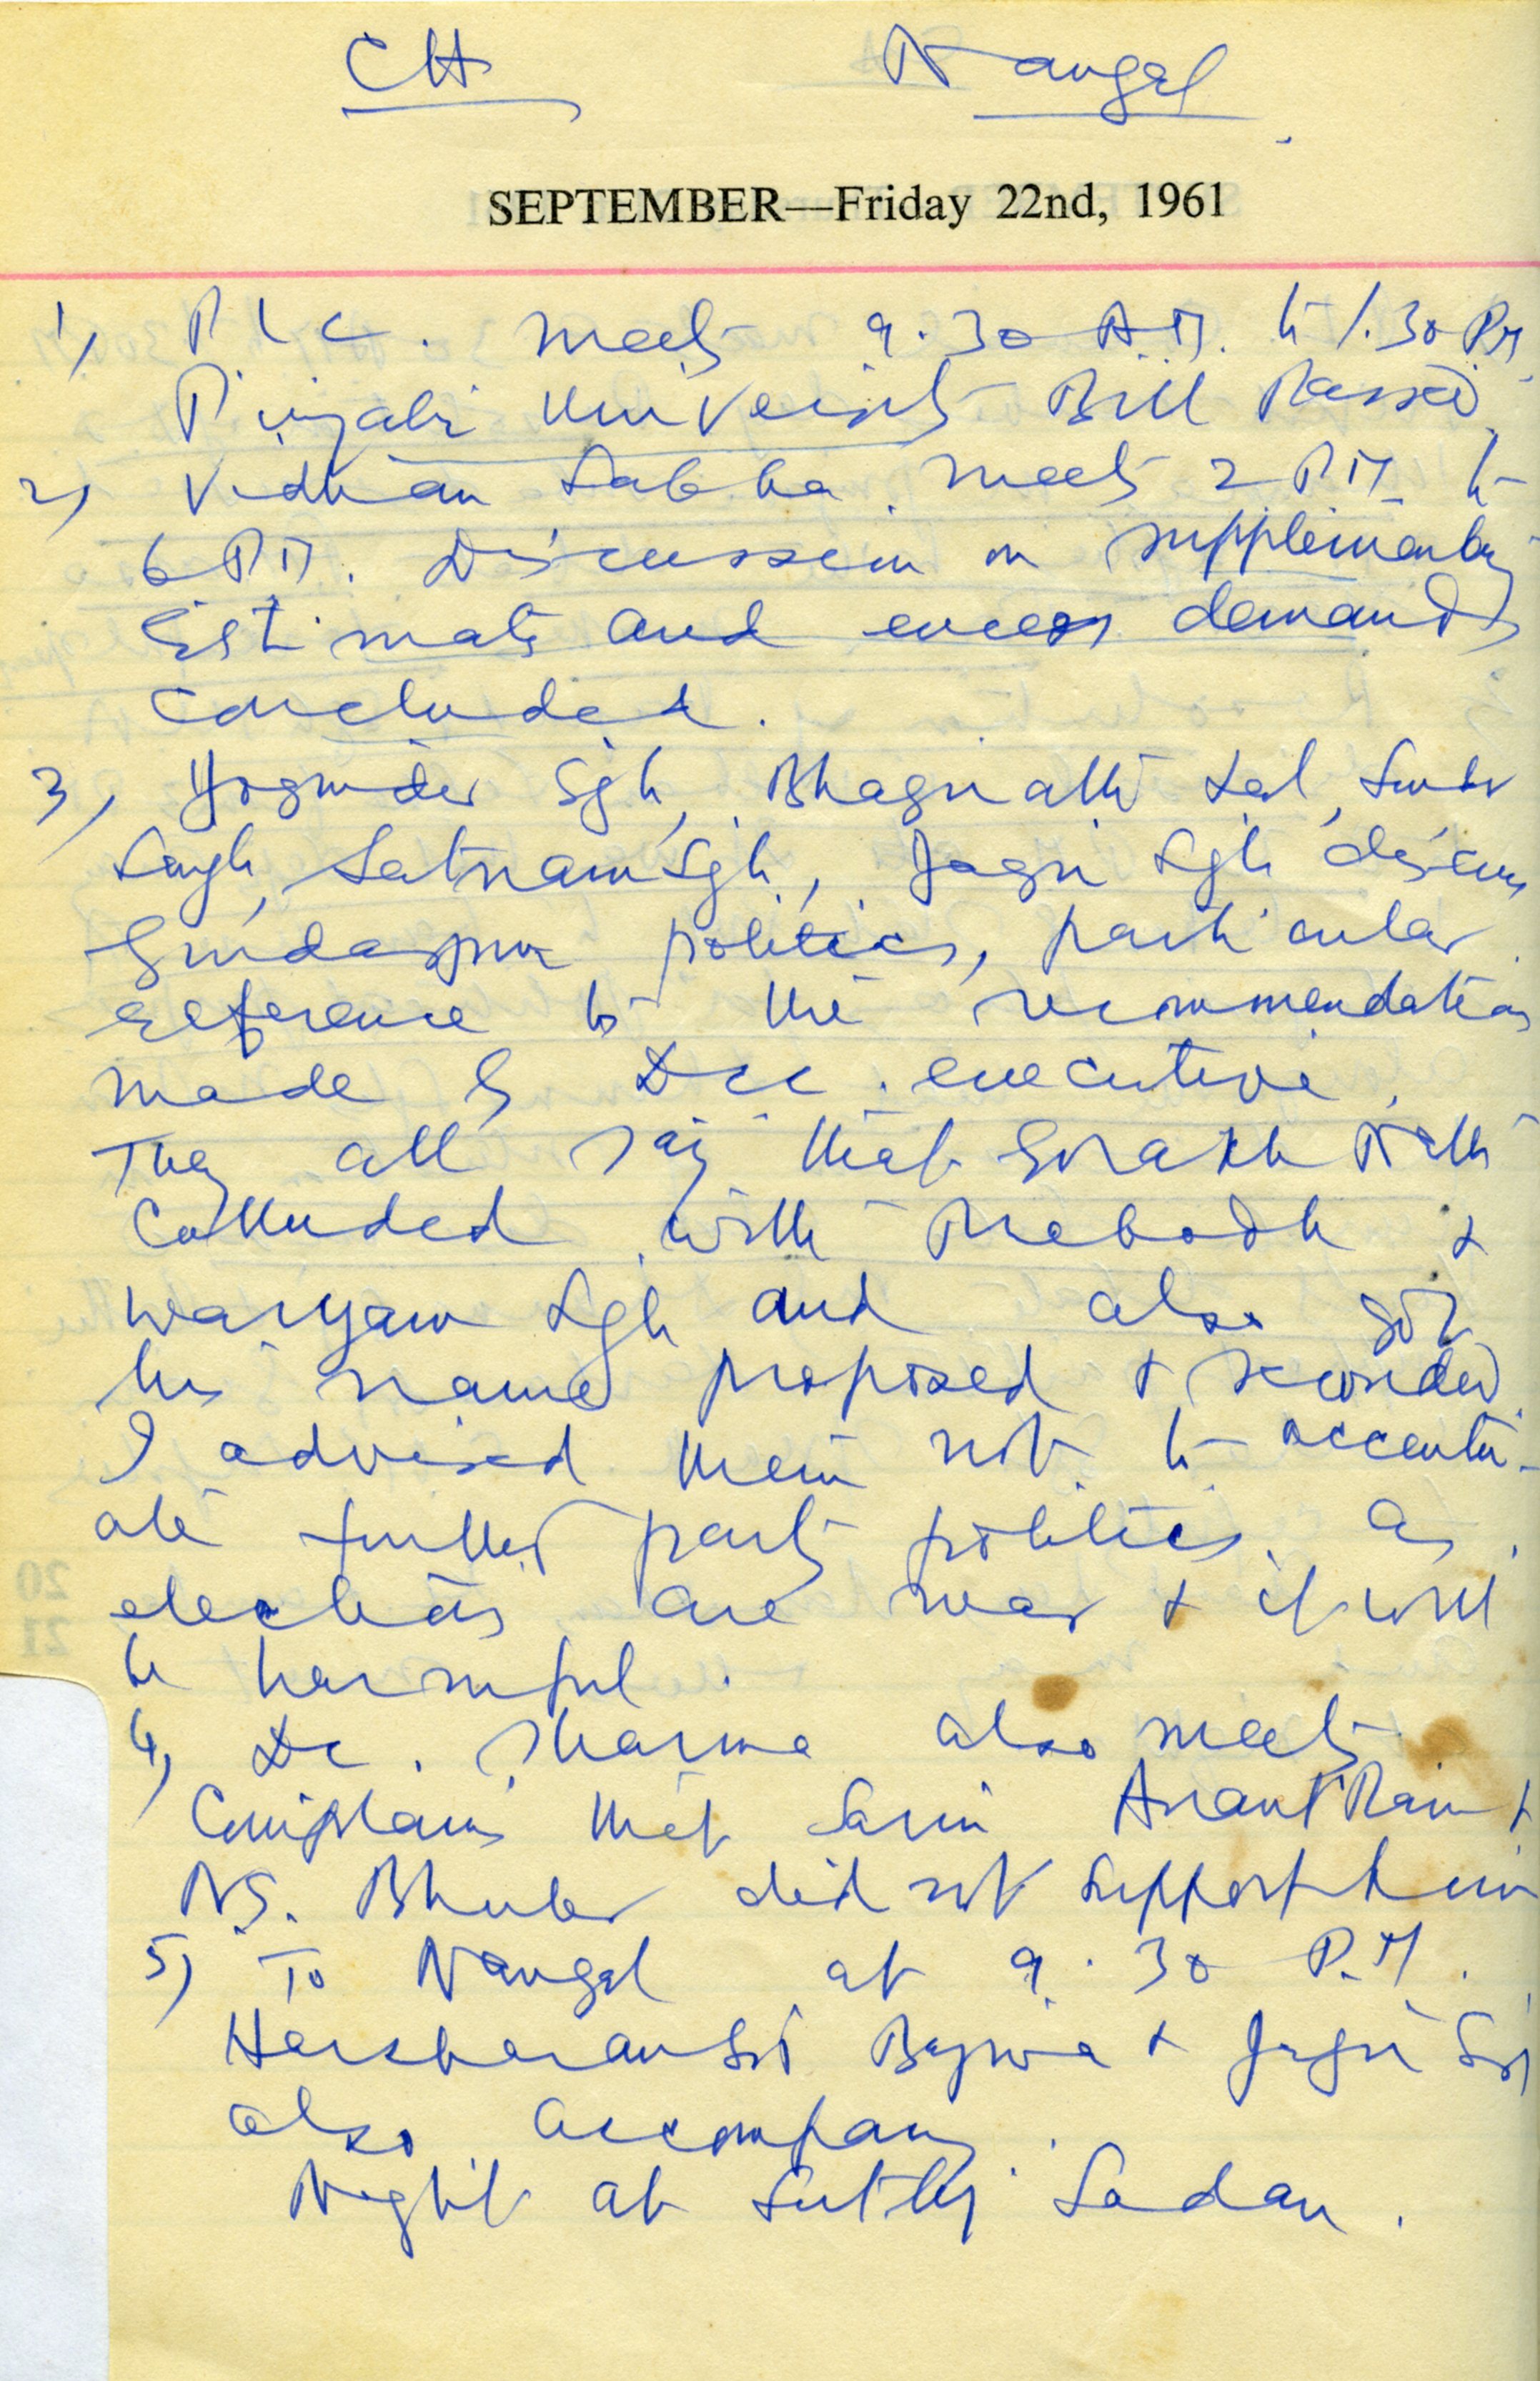 CH Nangal
SEPTEMBER—Friday 22nd, 1961
1) P L C. meets 9.30 A.M. to 1.30 PM
Punjabi University Bill Passed.
2) Vidhan Sabha meets 2 PM to
6 PM. Discussion on supplementary
Estimates and excess demands
concluded.
3) Yoginder Sgh, Bhagirath Lal,
Singh, Satnam Sgh, Jagir Sgh discuss
Gurdaspur politics, particular
reference to the recommendations
made by Dcc. executive.
They all say that Gorakh Nath
colluded with Prabodh &
Waryam Sgh and also got
his name proposed & seconded.
I advised them not to accentu-
ate further party politics as
elections are near & it will
be harmful.
4) Dr. Sharma also meets
Complains that Sarin Anant Ram &
NS. Bhuler did not support him
5) To Nangal at 9.30 P.M.
Harcharanjit Bajwa & Jagir Sgh
also accompany.
Night at Sutlej Sadan.